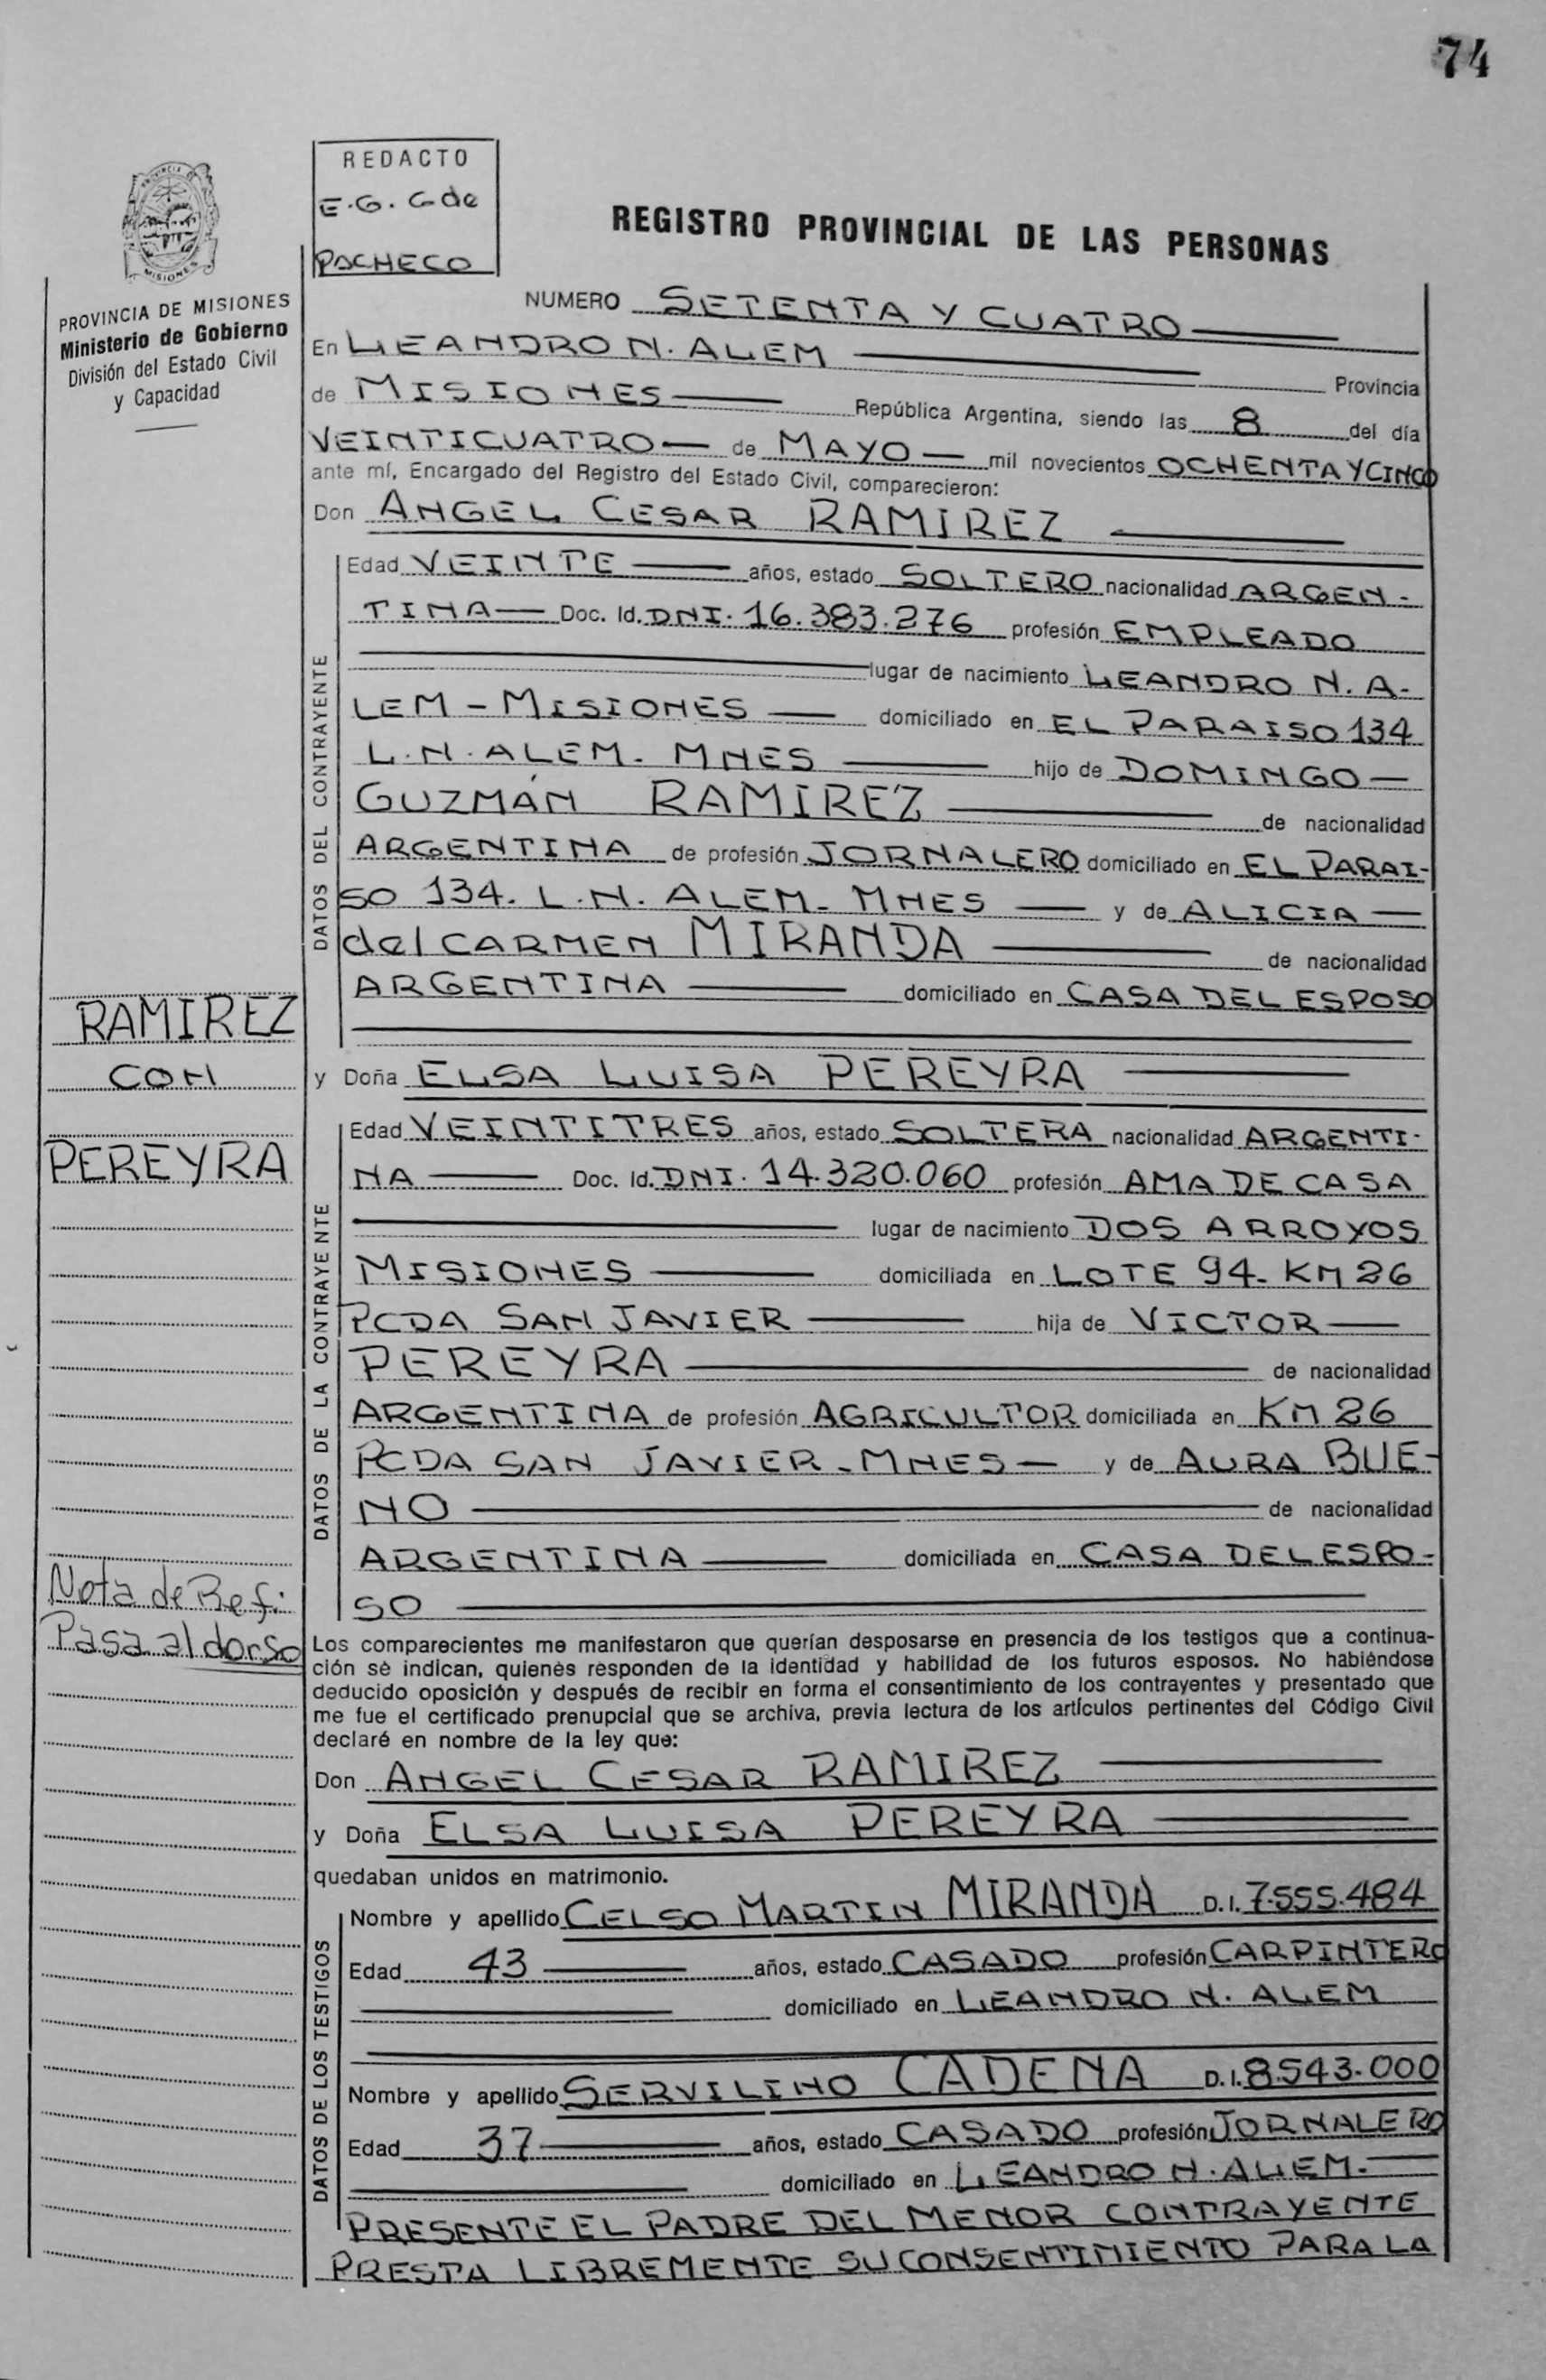 74
REDACTO
E.G. G de
PACHECO
PROVINCIA DE
MISIONES
PROVINCIA DE MISIONES
Ministerio de Gobierno
División del Estado Civil
y Capacidad
REGISTRO PROVINCIAL DE LAS PERSONAS
NUMERO SETENTA Y CUATRO
En LEANDRO N. ALEM Provincia
de MISIONES República Argentina, siendo las 8 del día
VEINTICUATRO de MAYO mil novecientos OCHENTA Y CINCO
ante mí, Encargado del Registro del Estado Civil, comparecieron:
Don ANGEL CESAR RAMIREZ
DATOS DEL CONTRAYENTE
Edad VEINTE años, estado SOLTERO nacionalidad ARGEN-
TINA Doc. Id. DNI. 16.383.276 profesión EMPLEADO
lugar de nacimiento LEANDRO N. A-
LEM - MISIONES domiciliado en EL PARAISO 134
L.N. ALEM. MNES hijo de DOMINGO
GUZMÁN RAMIREZ de nacionalidad
ARGENTINA de profesión JORNALERO domiciliado en EL PARAI-
SO 134. L.N. ALEM. MNES y de ALICIA
del CARMEN MIRANDA de nacionalidad
ARGENTINA domiciliado en CASA DEL ESPOSO
RAMIREZ
CON
PEREYRA
y Doña ELSA LUISA PEREYRA
DATOS DE LA CONTRAYENTE
Edad VEINTITRES años, estado SOLTERA nacionalidad ARGENTI-
NA Doc. Id. DNI. 14.320.060 profesión AMA DE CASA
lugar de nacimiento DOS ARROYOS
MISIONES domiciliada en LOTE 94- KM 26
PCDA SAN JAVIER hija de VICTOR
PEREYRA de nacionalidad
ARGENTINA de profesión AGRICULTOR domiciliada en KM 26
PCDA SAN JAVIER - MNES y de AURA BUE-
NO de nacionalidad
ARGENTINA domiciliada en CASA DEL ESPO-
SO
Nota de Ref:
Pasa al dorso
Los comparecientes me manifestaron que querían desposarse en presencia de los testigos que a continua-
ción se indican, quienes responden de la identidad y habilidad de los futuros esposos. No habiéndose
deducido oposición y después de recibir en forma el consentimiento de los contrayentes y presentado que
me fue el certificado prenupcial que se archiva, previa lectura de los artículos pertinentes del Código Civil
declaré en nombre de la ley que:
Don ANGEL CESAR RAMIREZ
y Doña ELSA LUISA PEREYRA
quedaban unidos en matrimonio.
DATOS DE LOS TESTIGOS
Nombre y apellido CELSO MARTIN MIRANDA D.I. 7.555.484
Edad 43 años, estado CASADO profesión CARPINTERO
domiciliado en LEANDRO N. ALEM
Nombre y apellido SERVILINO CADENA D.I. 8.543.000
Edad 37 años, estado CASADO profesión JORNALERO
domiciliado en LEANDRO N. ALEM.
PRESENTE EL PADRE DEL MENOR CONTRAYENTE
PRESTA LIBREMENTE SU CONSENTIMIENTO PARA LA